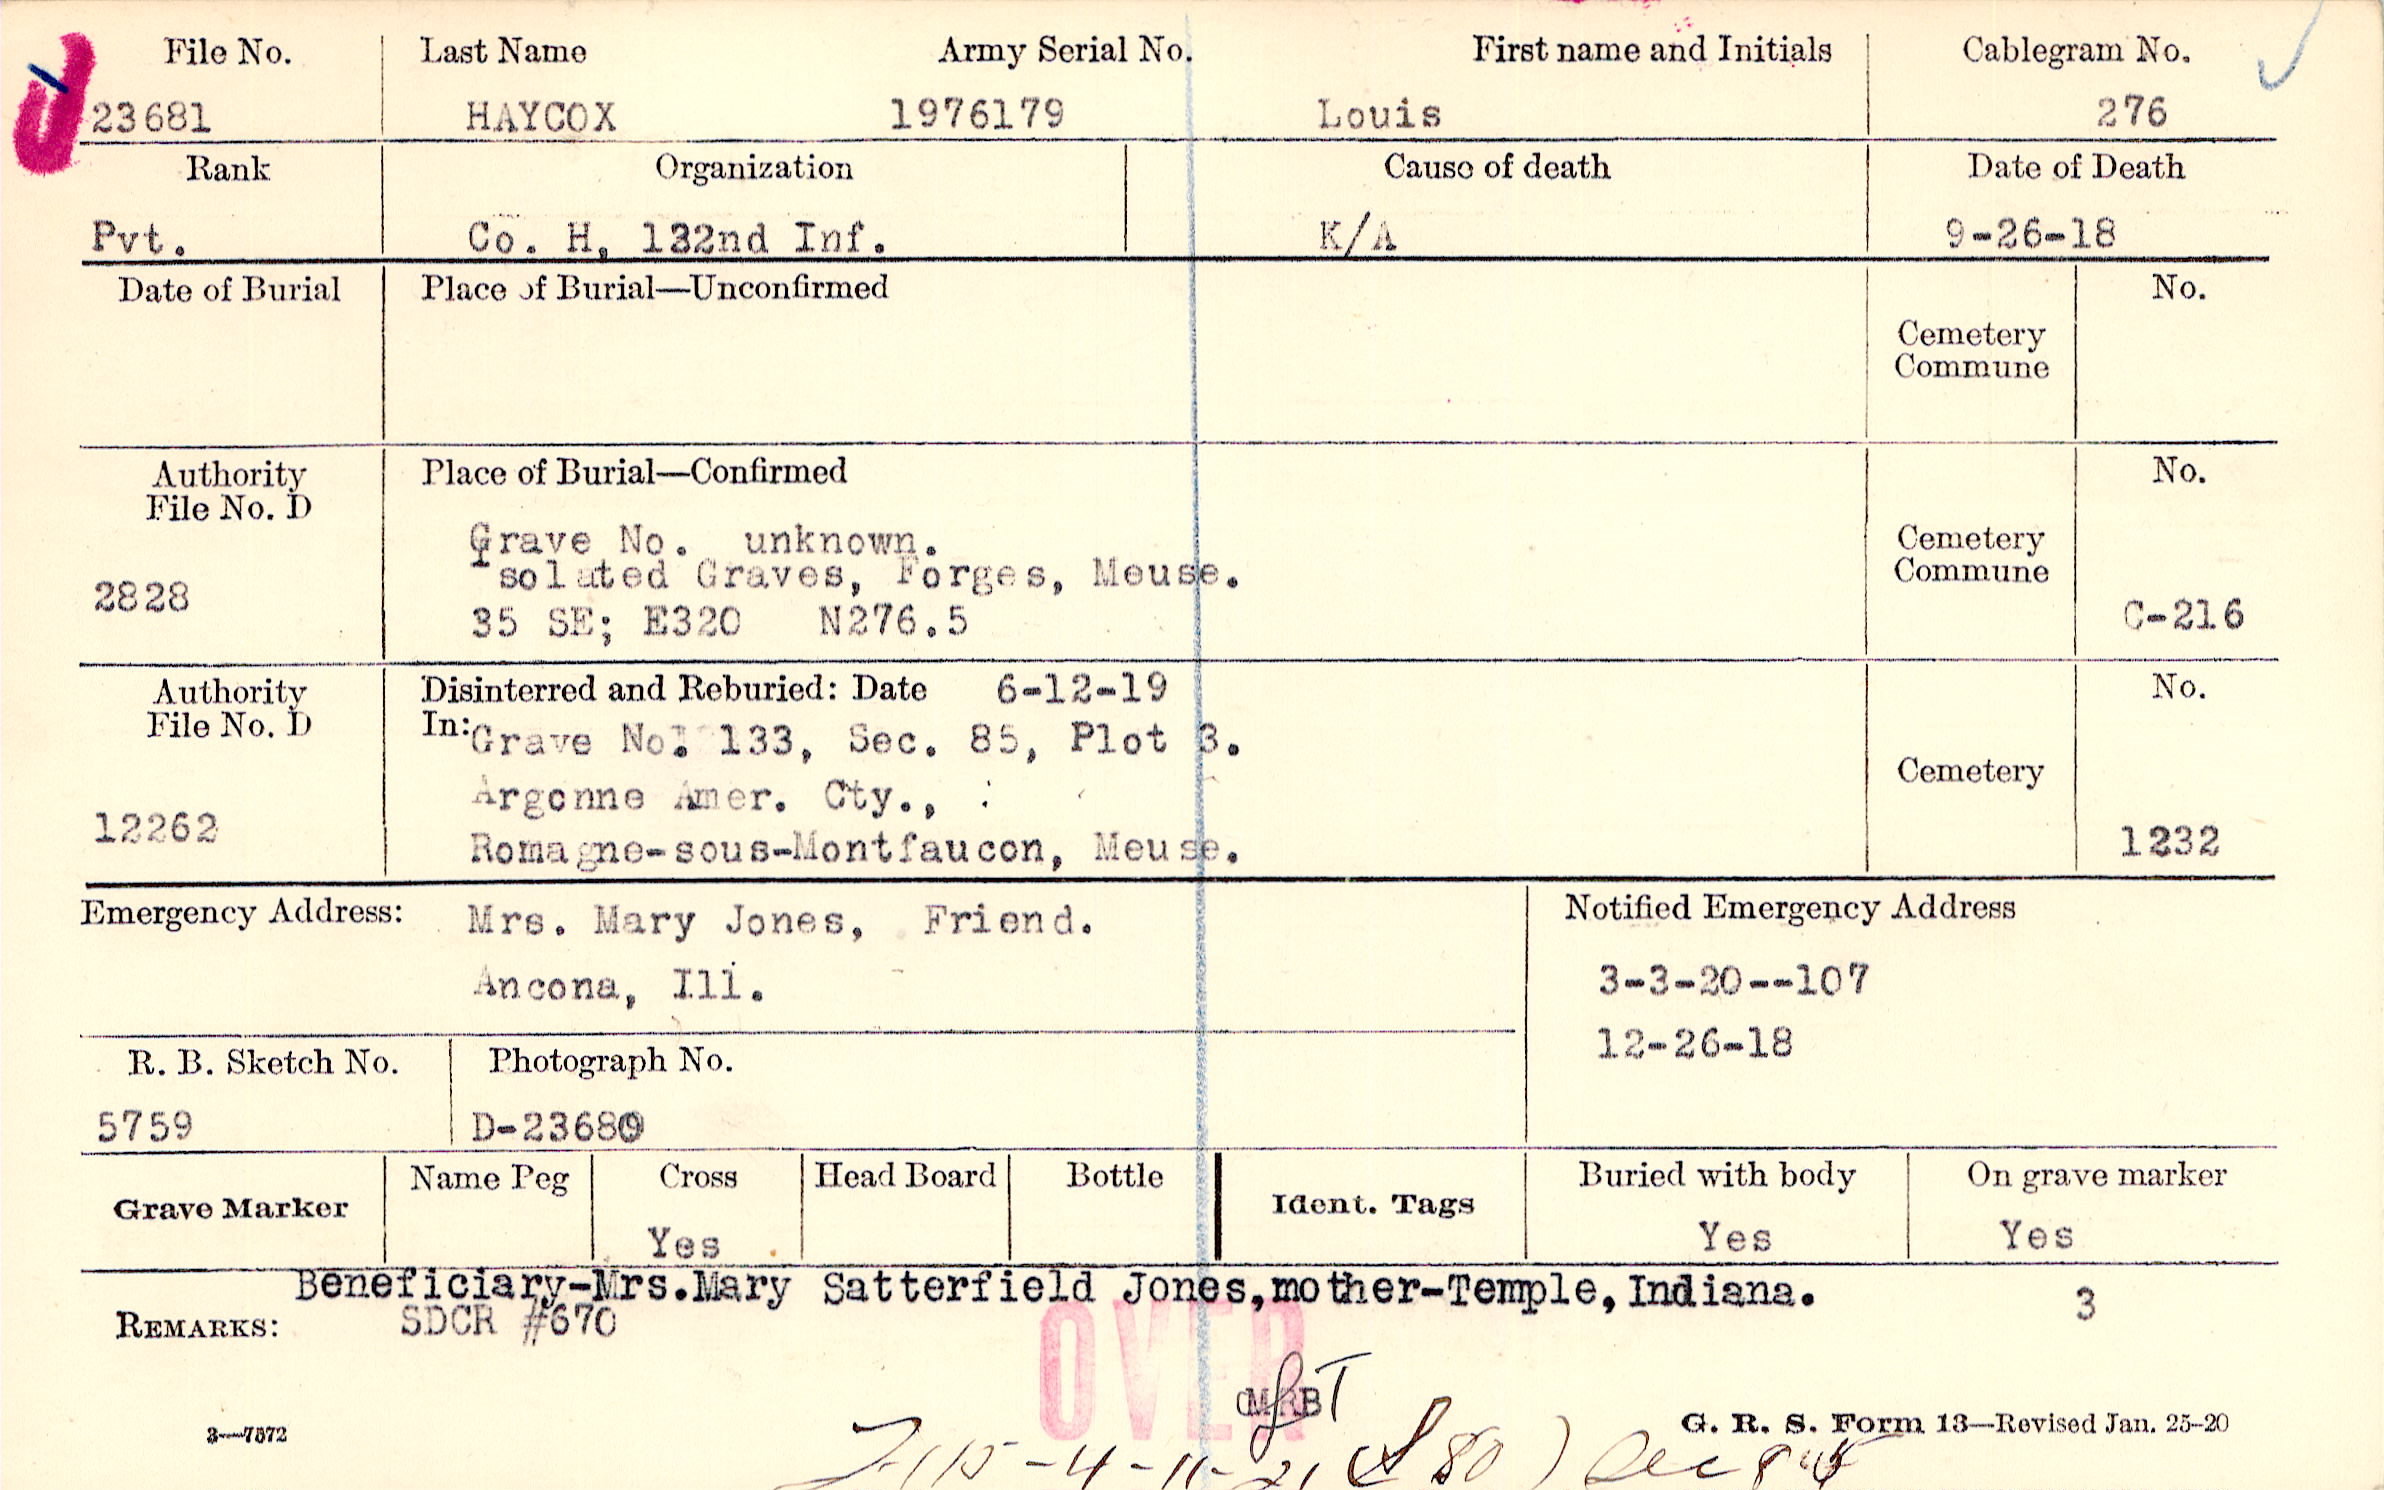 File No. Last Name Army Serial No. First name and Initials Cablegram No.
23681 HAYCOX 1976179 Louis 276
Rank Organization Cause of death Date of Death
Pvt. Co. H, 132nd Inf. K/A 9-26-18
Date of Burial Place of Burial—Unconfirmed No.
Cemetery
Commune
Authority Place of Burial—Confirmed No.
File No. D
Grave No. unknown. Cemetery
Isolated Graves, Forges, Meuse. Commune
2828
35 SE; E320 N276.5 C-216
Authority Disinterred and Reburied: Date 6-12-19 No.
File No. D In: Grave No. 133, Sec. 85, Plot 3.
Cemetery
Argonne Amer. Cty., :
12262 Romagne-sous-Montfaucon, Meuse. 1232
Emergency Address: Mrs. Mary Jones, Friend. Notified Emergency Address
Ancona, Ill. 3-3-20--107
12-26-18
R. B. Sketch No. Photograph No.
5759 D-23680
Grave Marker Name Peg Cross Head Board Bottle Ident. Tags Buried with body On grave marker
Yes Yes Yes
Beneficiary-Mrs.Mary Satterfield Jones,mother-Temple,Indiana. 3
REMARKS: SDCR #670
OVER
3—7572 G. R. S. Form 13—Revised Jan. 25-20